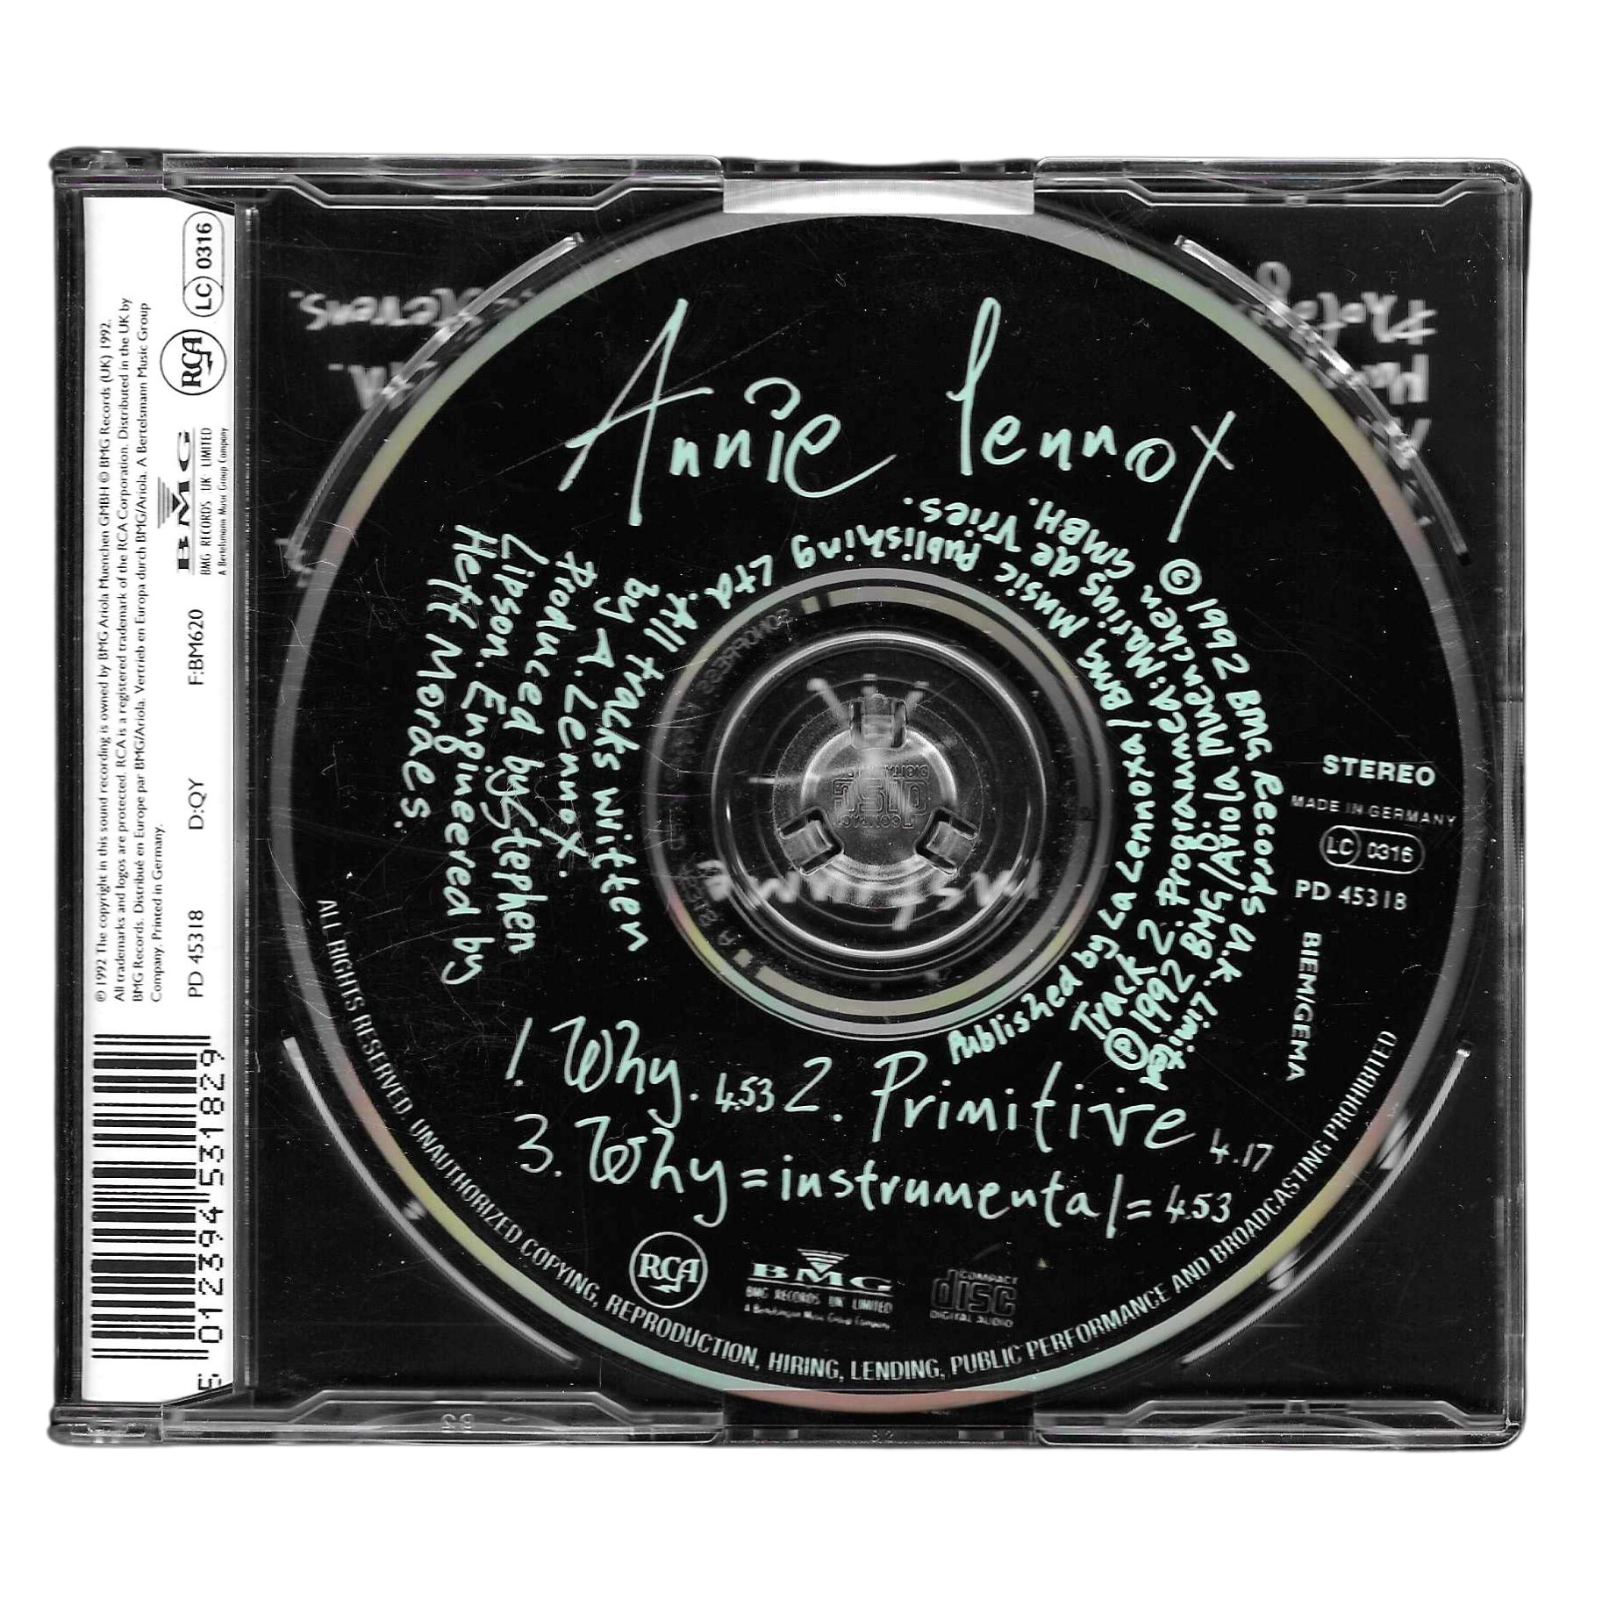 Annie lennox
All tracks written
by A. Lennox.
Produced by Stephen
Lipson. Engineered by
Heff Moraes.
Published by La Lennoxa / BMG Music Publishing Ltd.
Track 2 Programmed: Marius de Vries.
℗ 1992 BMG/Ariola Muenchen GMBH.
© 1992 BMG Records U.K. Limited
1. Why. 4.53 2. Primitive 4.17
3. Why = instrumental = 4.53
STEREO
MADE IN GERMANY
LC 0316
PD 45318
BIEM/GEMA
RCA
BMG
BMG RECORDS UK LIMITED
A Bertelsmann Music Group Company
COMPACT
disc
DIGITAL AUDIO
ALL RIGHTS RESERVED. UNAUTHORIZED COPYING, REPRODUCTION, HIRING, LENDING, PUBLIC PERFORMANCE AND BROADCASTING PROHIBITED
℗ 1992 The copyright in this sound recording is owned by BMG Ariola Muenchen GMBH © BMG Records (UK) 1992.
All trademarks and logos are protected. RCA is a registered trademark of the RCA Corporation. Distributed in the UK by
BMG Records. Distribué en Europe par BMG/Ariola. Vertrieb en Europa durch BMG/Ariola. A Bertelsmann Music Group
Company. Printed in Germany.
PD 45318 D:QY F:BM620
BMG
BMG RECORDS UK LIMITED
A Bertelsmann Music Group Company
RCA
LC 0316
5 012394 531829